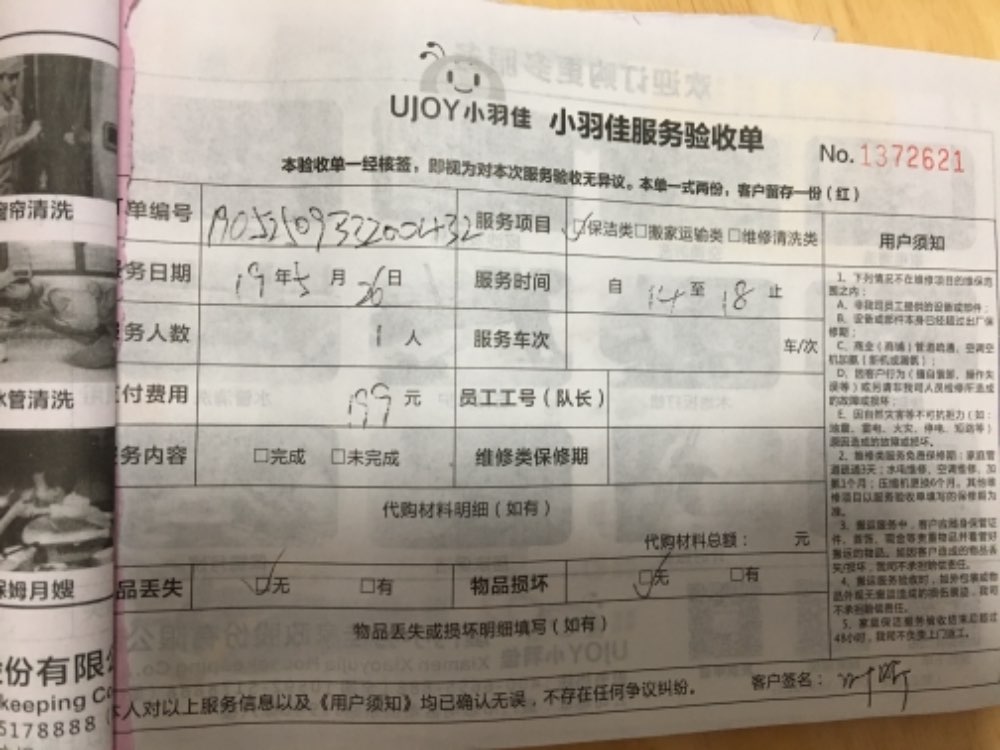 UJOY小羽佳 小羽佳服务验收单
No.1372621
本验收单一经核签，即视为对本次服务验收无异议。本单一式两份，客户留存一份（红）
单编号 服务项目 保洁类□搬家运输类 □维修清洗类
务日期 19年5月26日 服务时间 自 14 至 18 止
务人数 1 人 服务车次 车/次
付费用 199 元 员工工号（队长）
务内容 □完成 □未完成 维修类保修期
代购材料明细（如有）
代购材料总额： 元
品丢失 □无 □有 物品损坏 □无 □有
物品丢失或损坏明细填写（如有）
本人对以上服务信息以及《用户须知》均已确认无误，不存在任何争议纠纷。 客户签名：
用户须知
1、下列情况不在维修项目的维保范
围之内：
A、非我司员工提供的设备或部件；
B、设备或部件本身已经超过出厂保
修期；
C、商业（商铺）管道疏通、空调空
机加氟（新机或漏氟）；
D、因客户行为（擅自装卸、操作失
误等）或另请非我司人员维修所造成
的故障或损坏；
E、因自然灾害等不可抗拒力（如：
地震、雷电、火灾、停电、短路等）
原因造成的故障或损坏。
2、维修类服务免费保修期：家庭管
道疏通3天；水电维修、空调维修、加
氟1个月；压缩机更换6个月。其他维
修项目以服务验收单填写的保修期为
准。
3、搬运服务中，客户应随身保管证
件、首饰、现金等贵重物品并看管好
搬运的物品。如因客户造成的物品丢
失/损坏，我司不承担赔偿责任。
4、搬运服务验收时，如外包装或物
品外观无搬运造成的损伤痕迹，我司
不承担赔偿责任。
5、家庭保洁服务验收结束后超过
48小时，我司不负责上门返工。
窗帘清洗
水管清洗
保姆月嫂
份有限公
keeping Co
5178888